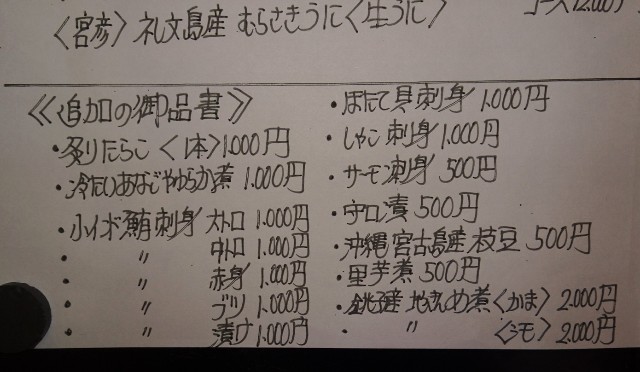 〈宮彦〉礼文島産 むらさきうに〈生うに〉
コース12.000円
《追加の御品書》
・炙りたらこ〈1本〉1.000円
・冷たいあなごやわらか煮 1.000円
・小イボ鮪刺身 大トロ 1.000円
・〃 中トロ 1.000円
・〃 赤身 1.000円
・〃 ブツ 1.000円
・〃 漬け 1.000円
・ほたて貝刺身 1.000円
・しゃこ刺身 1.000円
・サーモン刺身 500円
・守口漬 500円
・沖縄宮古島産枝豆 500円
・里芋煮 500円
・銚子産 地きんめ煮〈かま〉2.000円
・〃 〈シモ〉2.000円